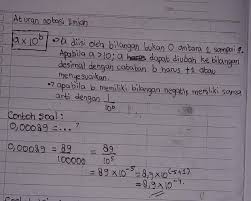 Aturan notasi ilmiah
a x 10^b → a diisi oleh bilangan bukan 0 antara 1 sampai 9.
Apabila a > 10, a dapat diubah ke bilangan
desimal dengan catatan b harus +1 atau
menyesuaikan.
→ apabila b memiliki bilangan negatif memiliki sama
arti dengan 1/10^b
Contoh Soal :
0,00089 = ... ?
0,00089 = 89/100000 = 89/10^5
= 89 x 10^-5 = 8,9 x 10^(-5+1)
= 8,9 x 10^-4.